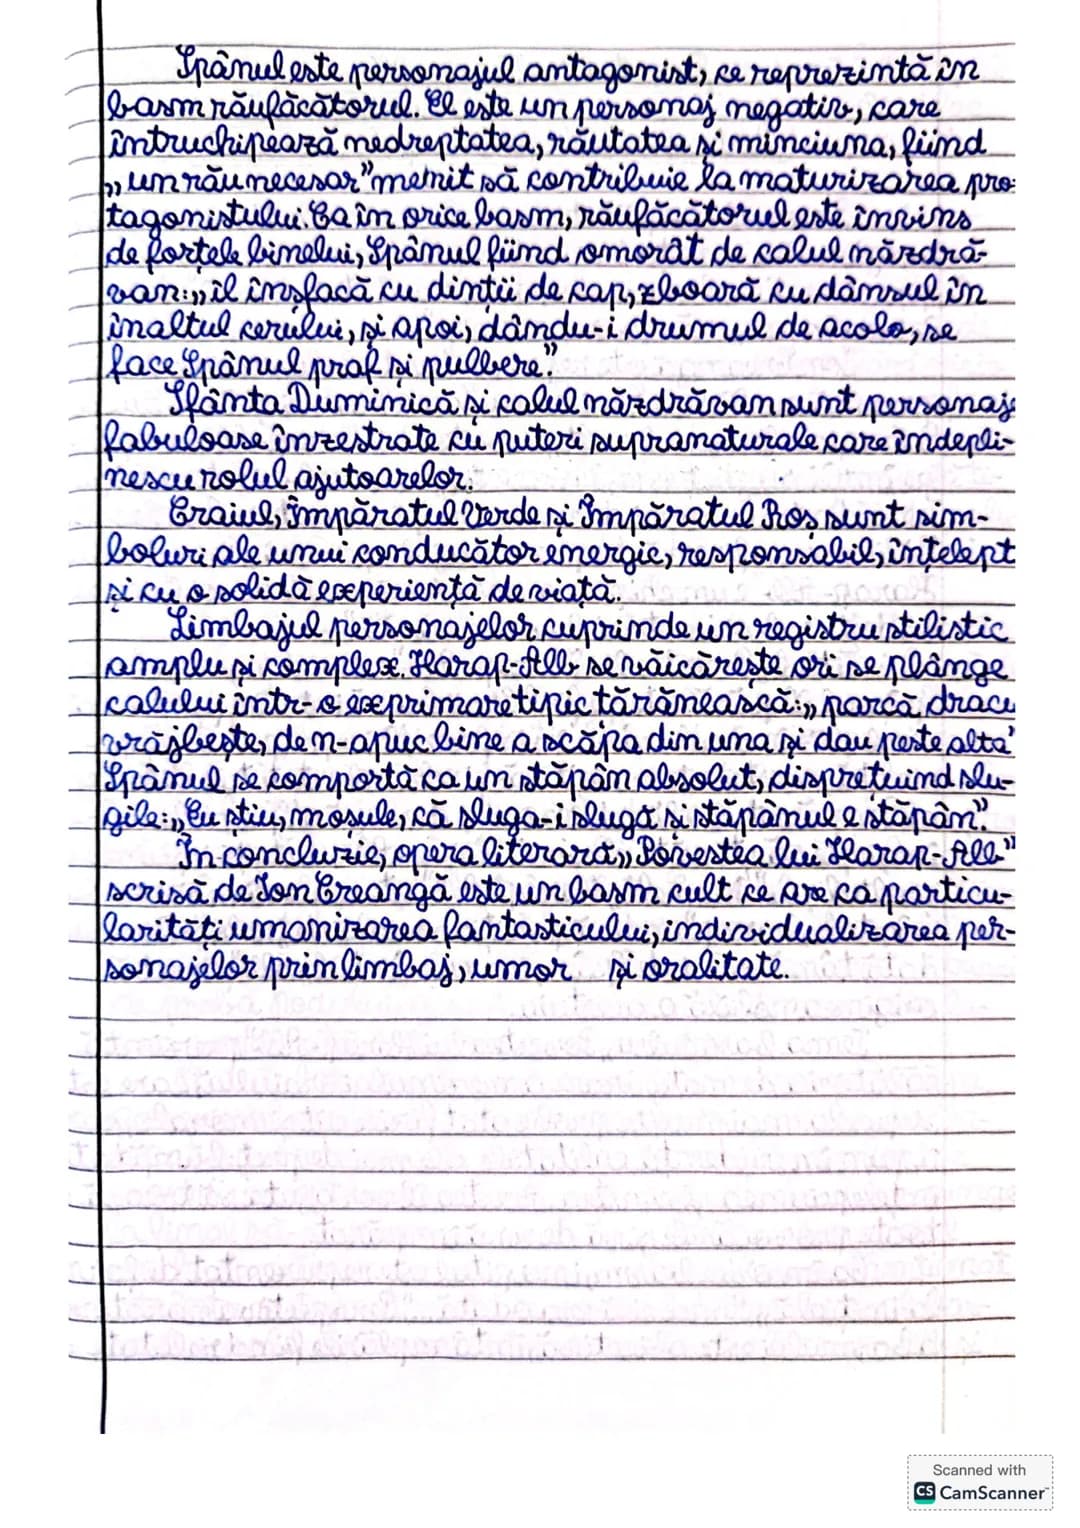 Spânul este personajul antagonist, ce reprezintă în
basm răufăcătorul. El este un personaj negativ, care
întruchipează nedreptatea, răutatea și minciuna, fiind
„un rău necesar" menit să contribuie la maturizarea pro-
tagonistului. Ca în orice basm, răufăcătorul este învins
de forțele binelui, Spânul fiind omorât de calul năzdră-
van: „îl înșfacă cu dinții de cap, zboară cu dânsul în
înaltul cerului, și apoi, dându-i drumul de acolo, se
face Spânul praf și pulbere".
Sfânta Duminică și calul năzdrăvan sunt personaje
fabuloase înzestrate cu puteri supranaturale care îndepli-
nescu rolul ajutoarelor.
Craiul, Împăratul Verde și Împăratul Roș sunt sim-
boluri ale unui conducător energic, responsabil, înțelept
și cu o solidă experiență de viață.
Limbajul personajelor cuprinde un registru stilistic
amplu și complex. Harap-Alb se văicărește ori se plânge
calului într-o exprimare tipic țărănească: „parcă dracu
vrăjbește, de n-apuc bine a scăpa din una și dau peste alta"
Spânul se comportă ca un stăpân absolut, disprețuind slu-
gile: „Eu știu, moșule, că sluga-i slugă și stăpânul e stăpân".
În concluzie, opera literară „Povestea lui Harap-Alb"
scrisă de Ion Creangă este un basm cult ce are ca particu-
larități umanizarea fantasticului, individualizarea per-
sonajelor prin limbaj, umor și oralitate.
Scanned with
CS CamScanner